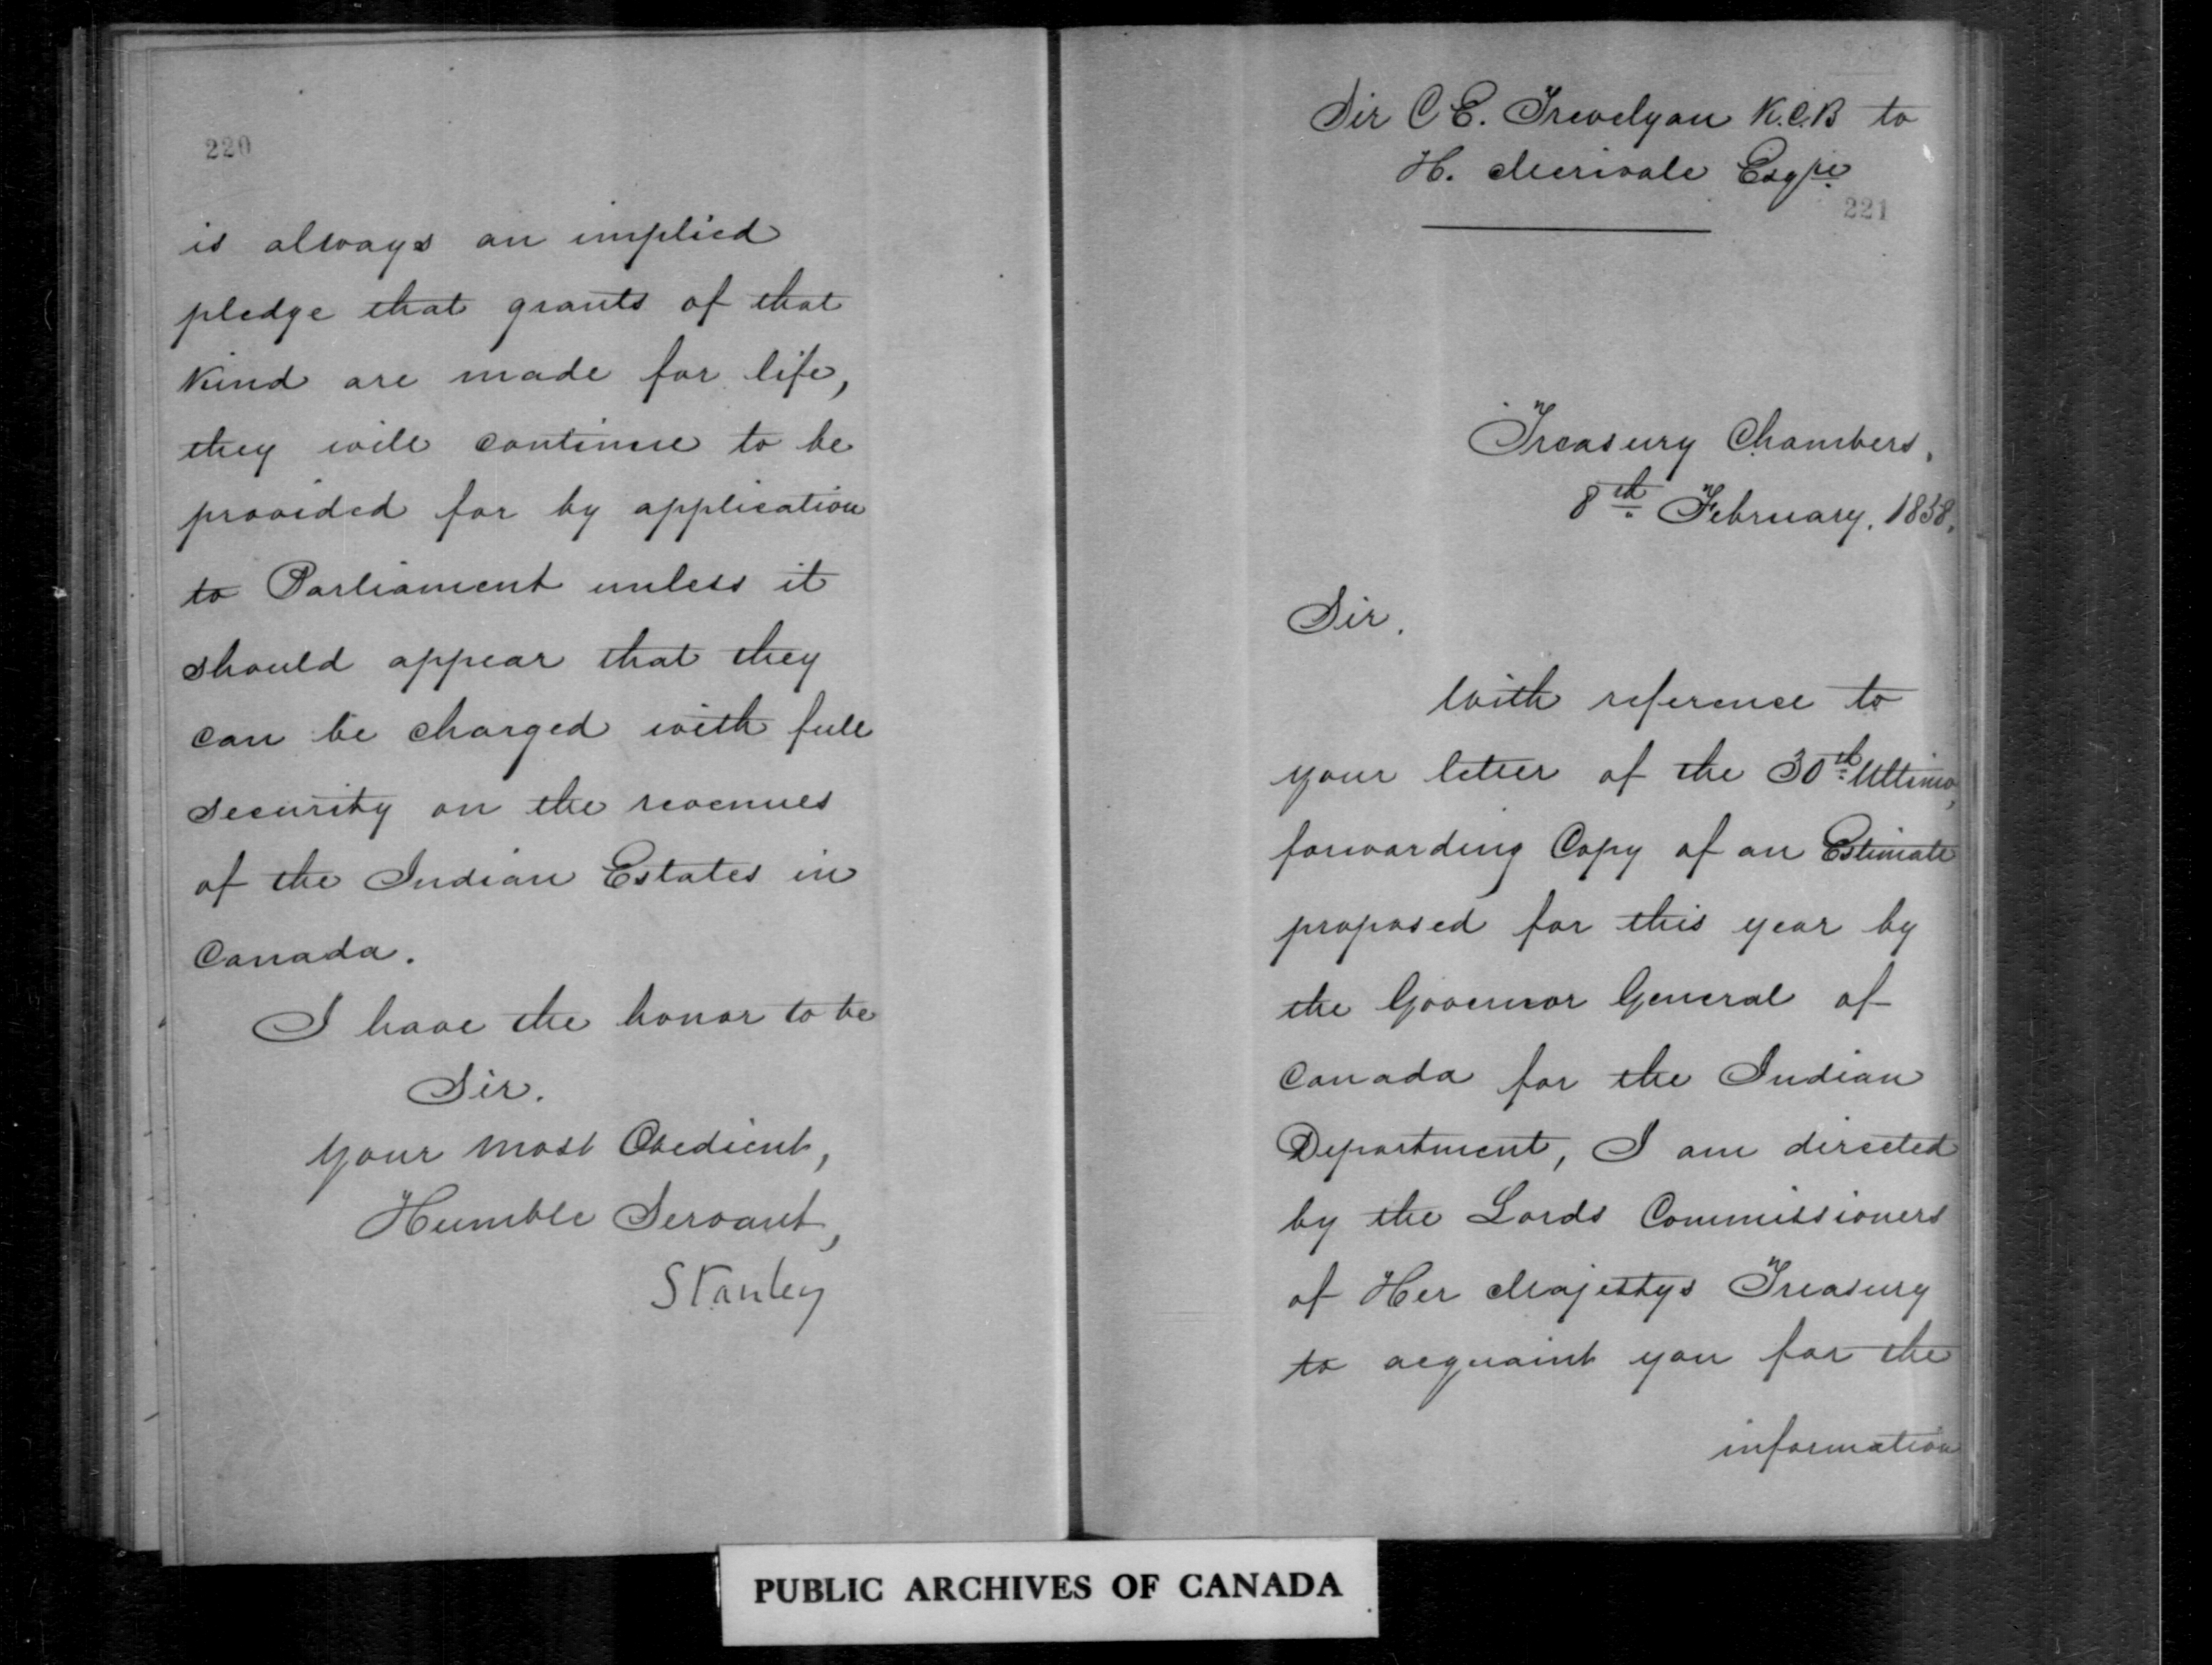 220
is always an implied
pledge that grants of that
kind are made for life,
they will continue to be
provided for by application
to Parliament unless it
should appear that they
can be charged with full
security on the revenues
of the Indian Estates in
Canada.
I have the honor to be
Sir.
Your Most Obedient,
Humble Servant,
Stanley
Sir C E. Trevelyan K.C.B to
H. Merivale Esqre
221
Treasury Chambers,
8th February, 1858.
Sir.
With reference to
your letter of the 30th Ultimo,
forwarding Copy of an Estimate
proposed for this year by
the Governor General of
Canada for the Indian
Department, I am directed
by the Lords Commissioners
of Her Majestys Treasury
to acquaint you for the
information
PUBLIC ARCHIVES OF CANADA